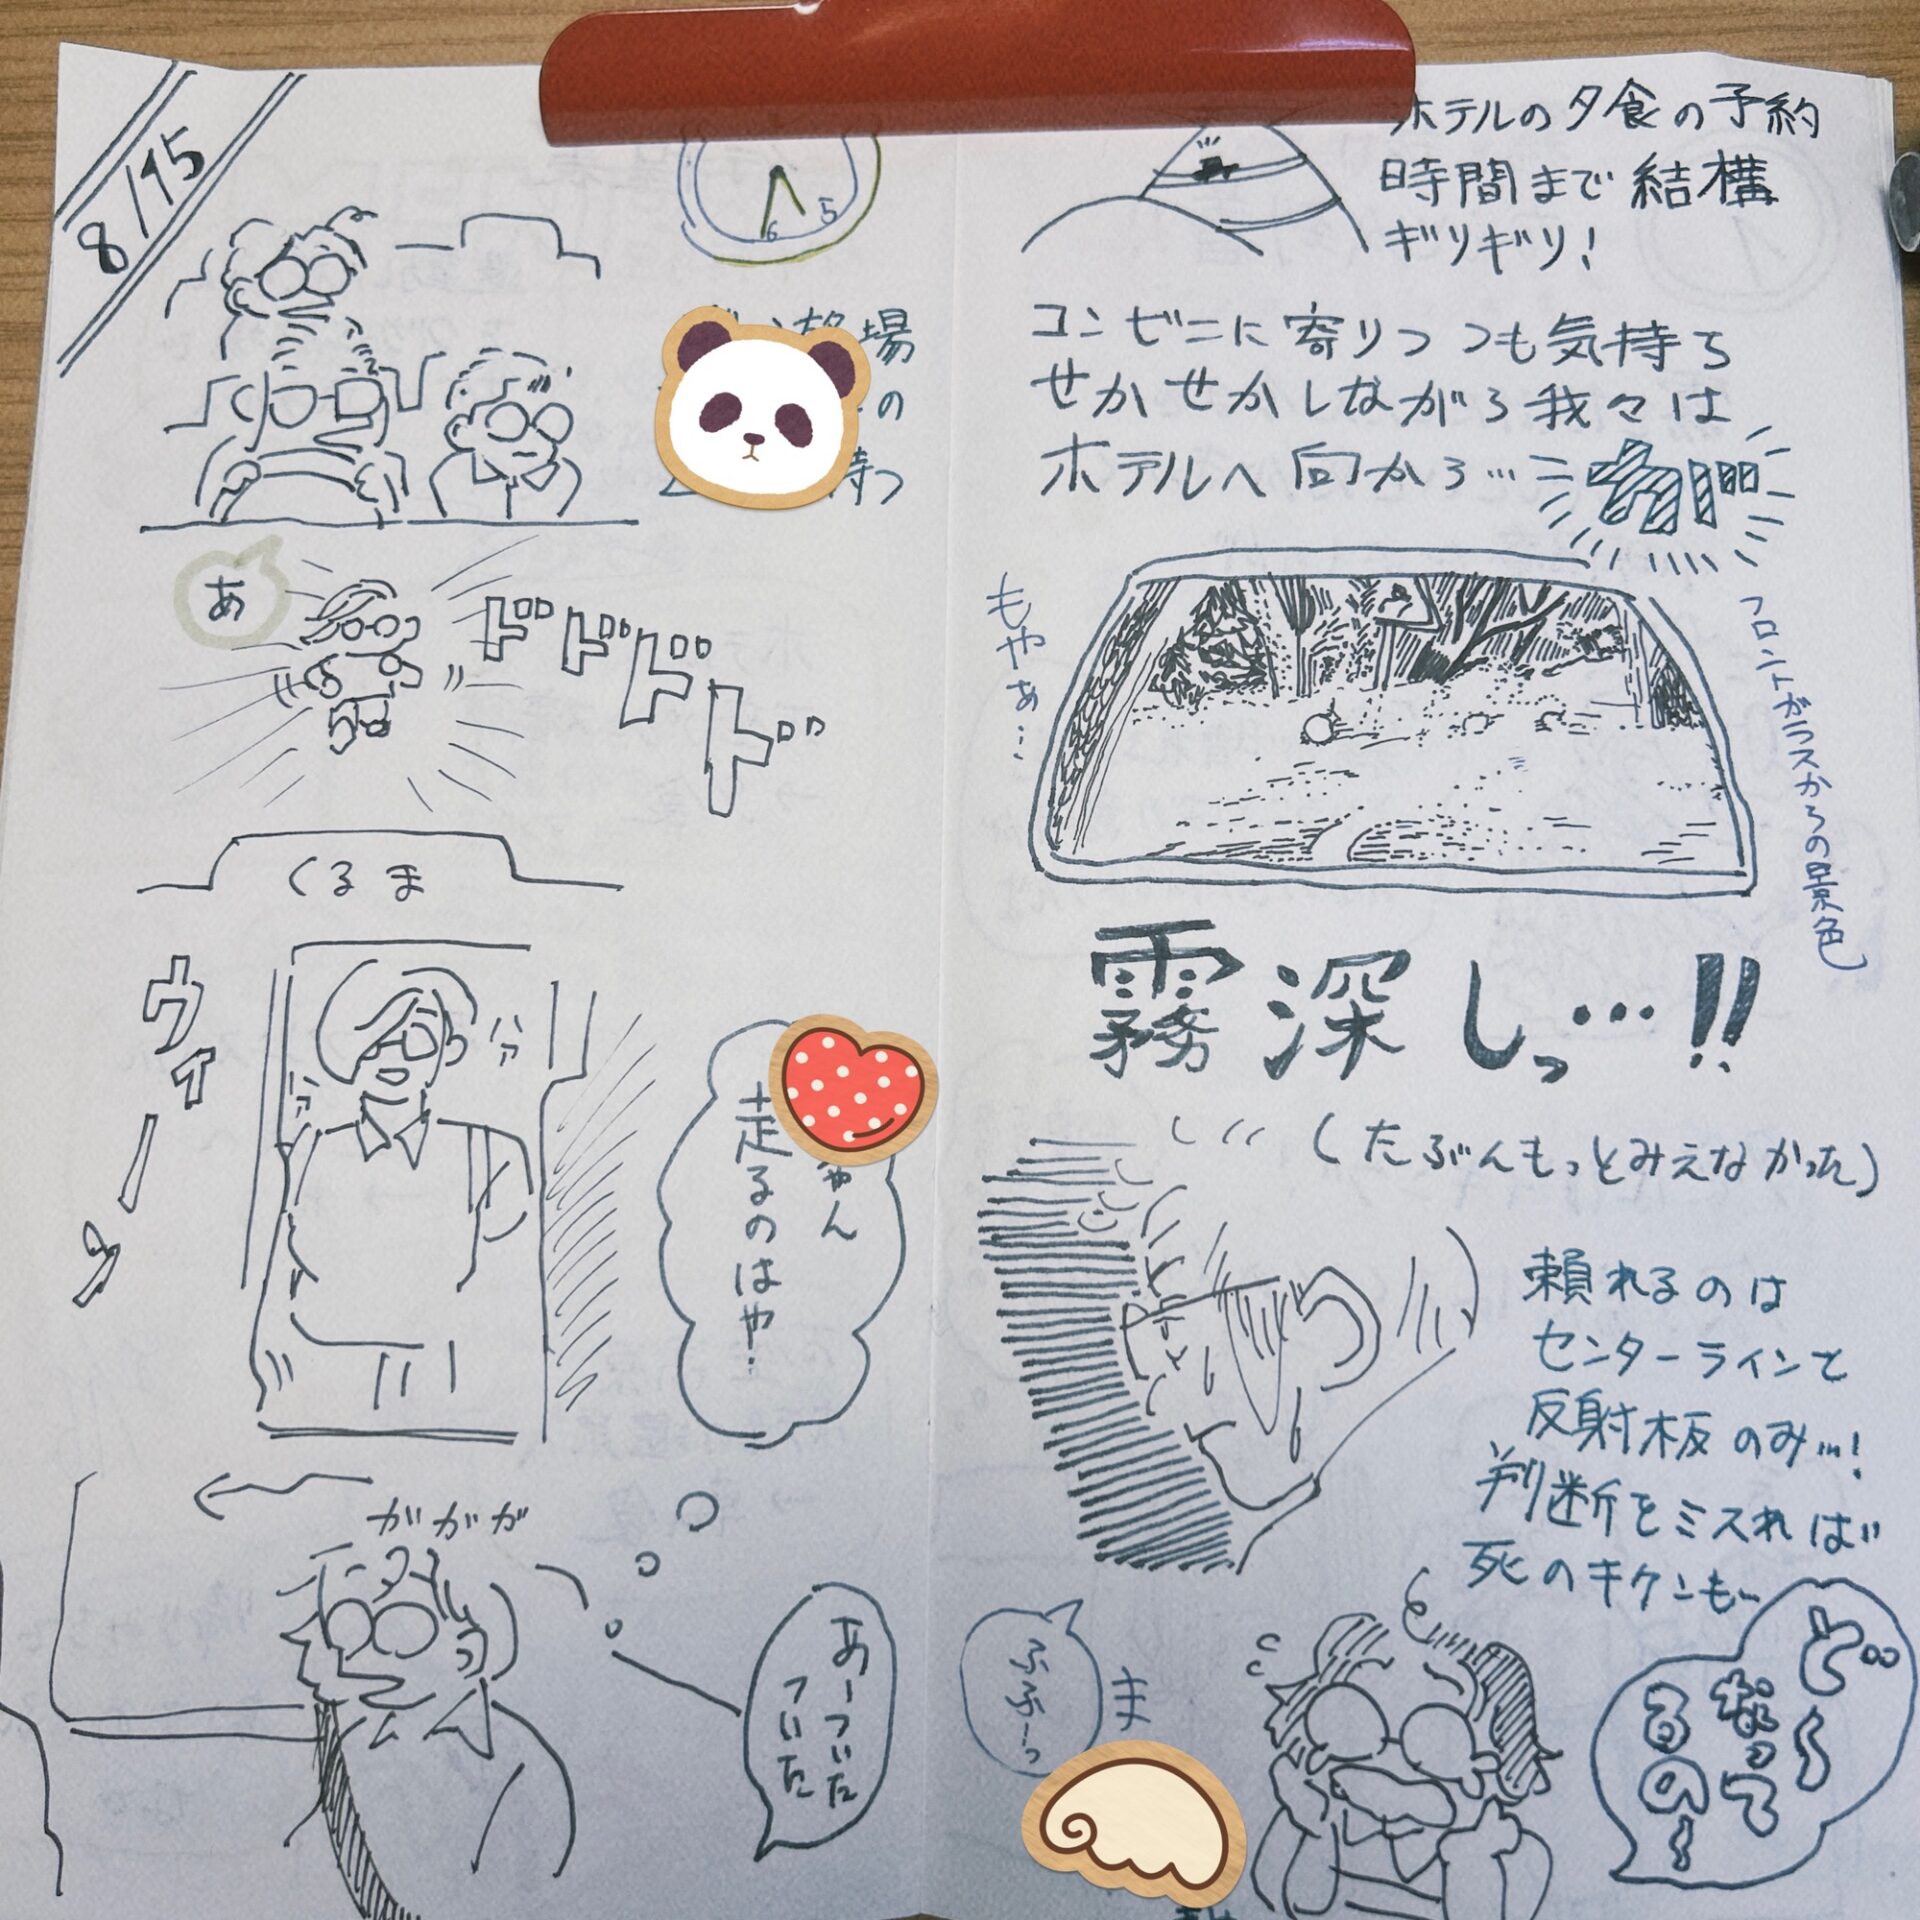 8/15
6 5
場
の
待つ
あ
ドドドド
くるま
ウィーン
ハァ
走るのはや…
ががが
あーついた
ついた
ホテルの夕食の予約
時間まで結構
ギリギリ!
コンビニに寄りつつも気持ち
せかせかしながら我々は
ホテルへ向から…
もやぁ…
フロントガラスからの景色
霧深しっ…!!
(たぶんもっとみえなかった)
頼れるのは
センターラインと
反射板のみ…!
判断をミスれば
死のキケンも…
ふぶーっ
ど〜
なって
るの〜